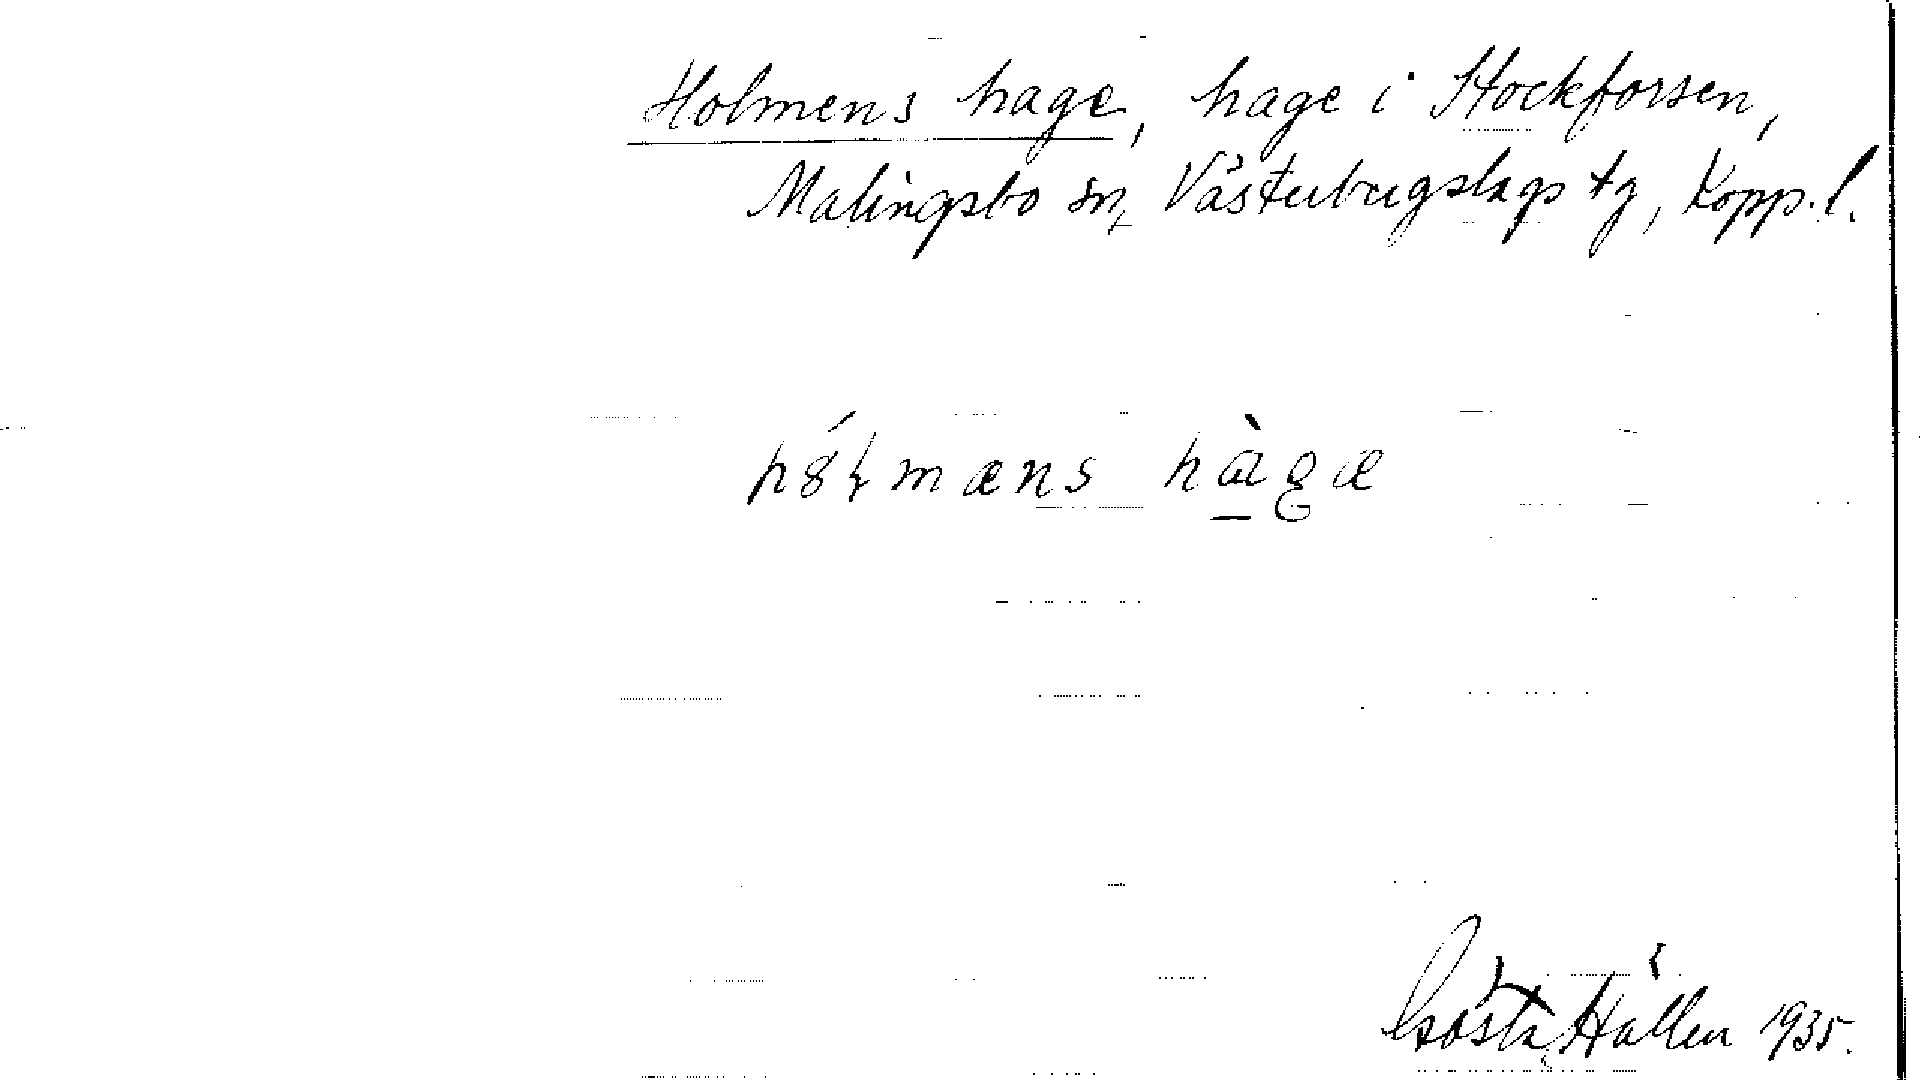 Holmens hage, hage i Stockforsen,
Malingsbo sn, Västerbergslags tg, Kopp. l.
hȣ́ɬmæns hàgæ
Gösta Hällen 1935.